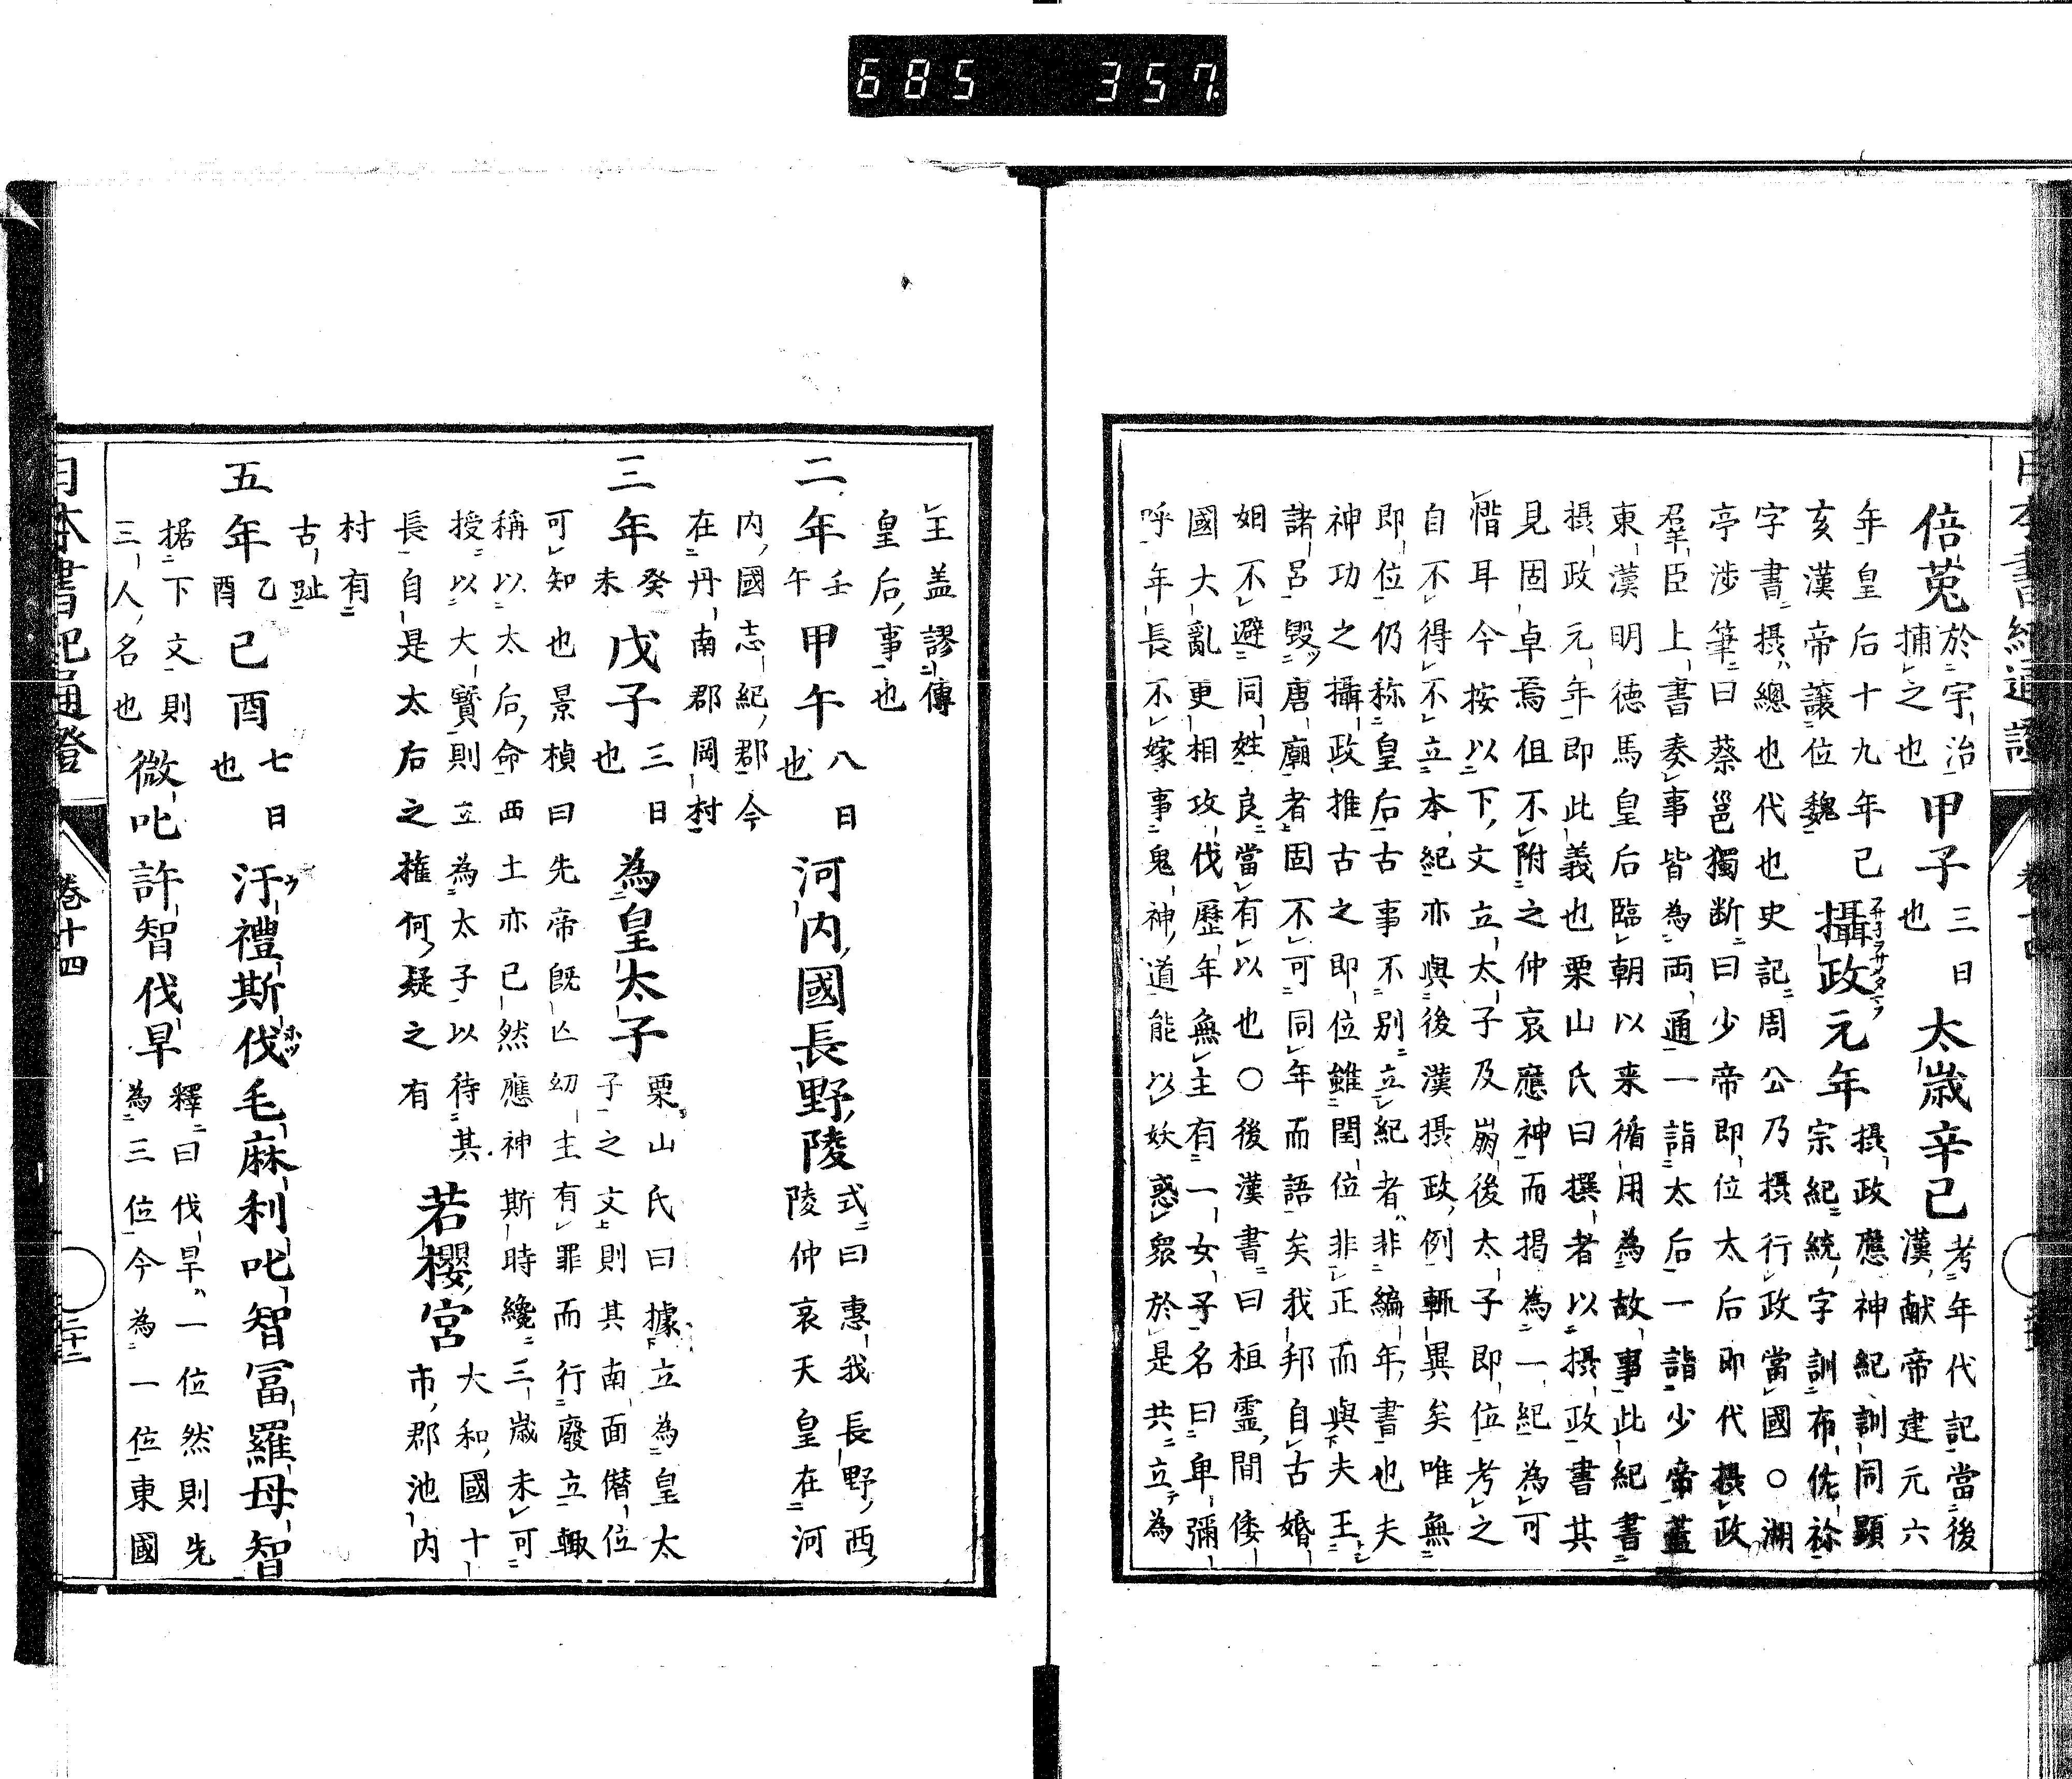 685 357
倍菟 於宇治 捕之也 甲子 三日 也 太歳辛巳 考年代記當後 漢献帝建元六
年皇后十九年已 亥漢帝譲位魏 攝政元年 摂政應神紀訓同顕 宗紀統字訓布佐祢
字書摂總也代也史記周公乃摂行政當國○湖
亭渉筆曰蔡邕獨断曰少帝即位太后即代摂政
羣臣上書奏事皆為両通一詣太后一詣少帝蓋
東漢明徳馬皇后臨朝以来循用為故事此紀書
摂政元年即此義也栗山氏曰撰者以摂政書其
見固卓焉但不附之仲哀應神而掲為一紀為可
惜耳今按以下文立太子及崩後太子即位考之
自不得不立本紀亦與後漢摂政例輙異矣唯無
即位仍称皇后古事不別立紀者非編年書也夫
神功之攝政推古之即位雖閏位非正而與夫王
諸呂毀唐廟者固不可同年而語矣我邦自古婚
姻不避同姓良當有以也○後漢書曰桓霊間倭
國大亂更相攻伐歴年無主有一女子名曰卑彌
呼年長不嫁事鬼神道能以妖惑衆於是共立為
王盖謬傳
皇后事也
二年 壬午 甲午 八日 也 河内國長野陵 式曰惠我長野西 陵仲哀天皇在河
内國志紀郡今
在丹南郡岡村
三年 癸未 戊子 三日 也 為皇太子 栗山氏曰據立為皇太 子之文則其南面僣位
可知也景楨曰先帝既亾幼主有罪而行廢立輙
稱以太后命西土亦已然應神斯時纔三歳未可
授以大寳則立為太子以待其
長自是太后之權何疑之有 若櫻宮 大和國十 市郡池内
村有
古趾
五年 乙酉 己酉 七日 也 汙禮斯伐毛麻利叱智冨羅母智
据下文則 三人名也 微叱許智伐旱 釋曰伐旱一位然則先 為三位今為一位東國
日本書紀通證 卷十四 二十二